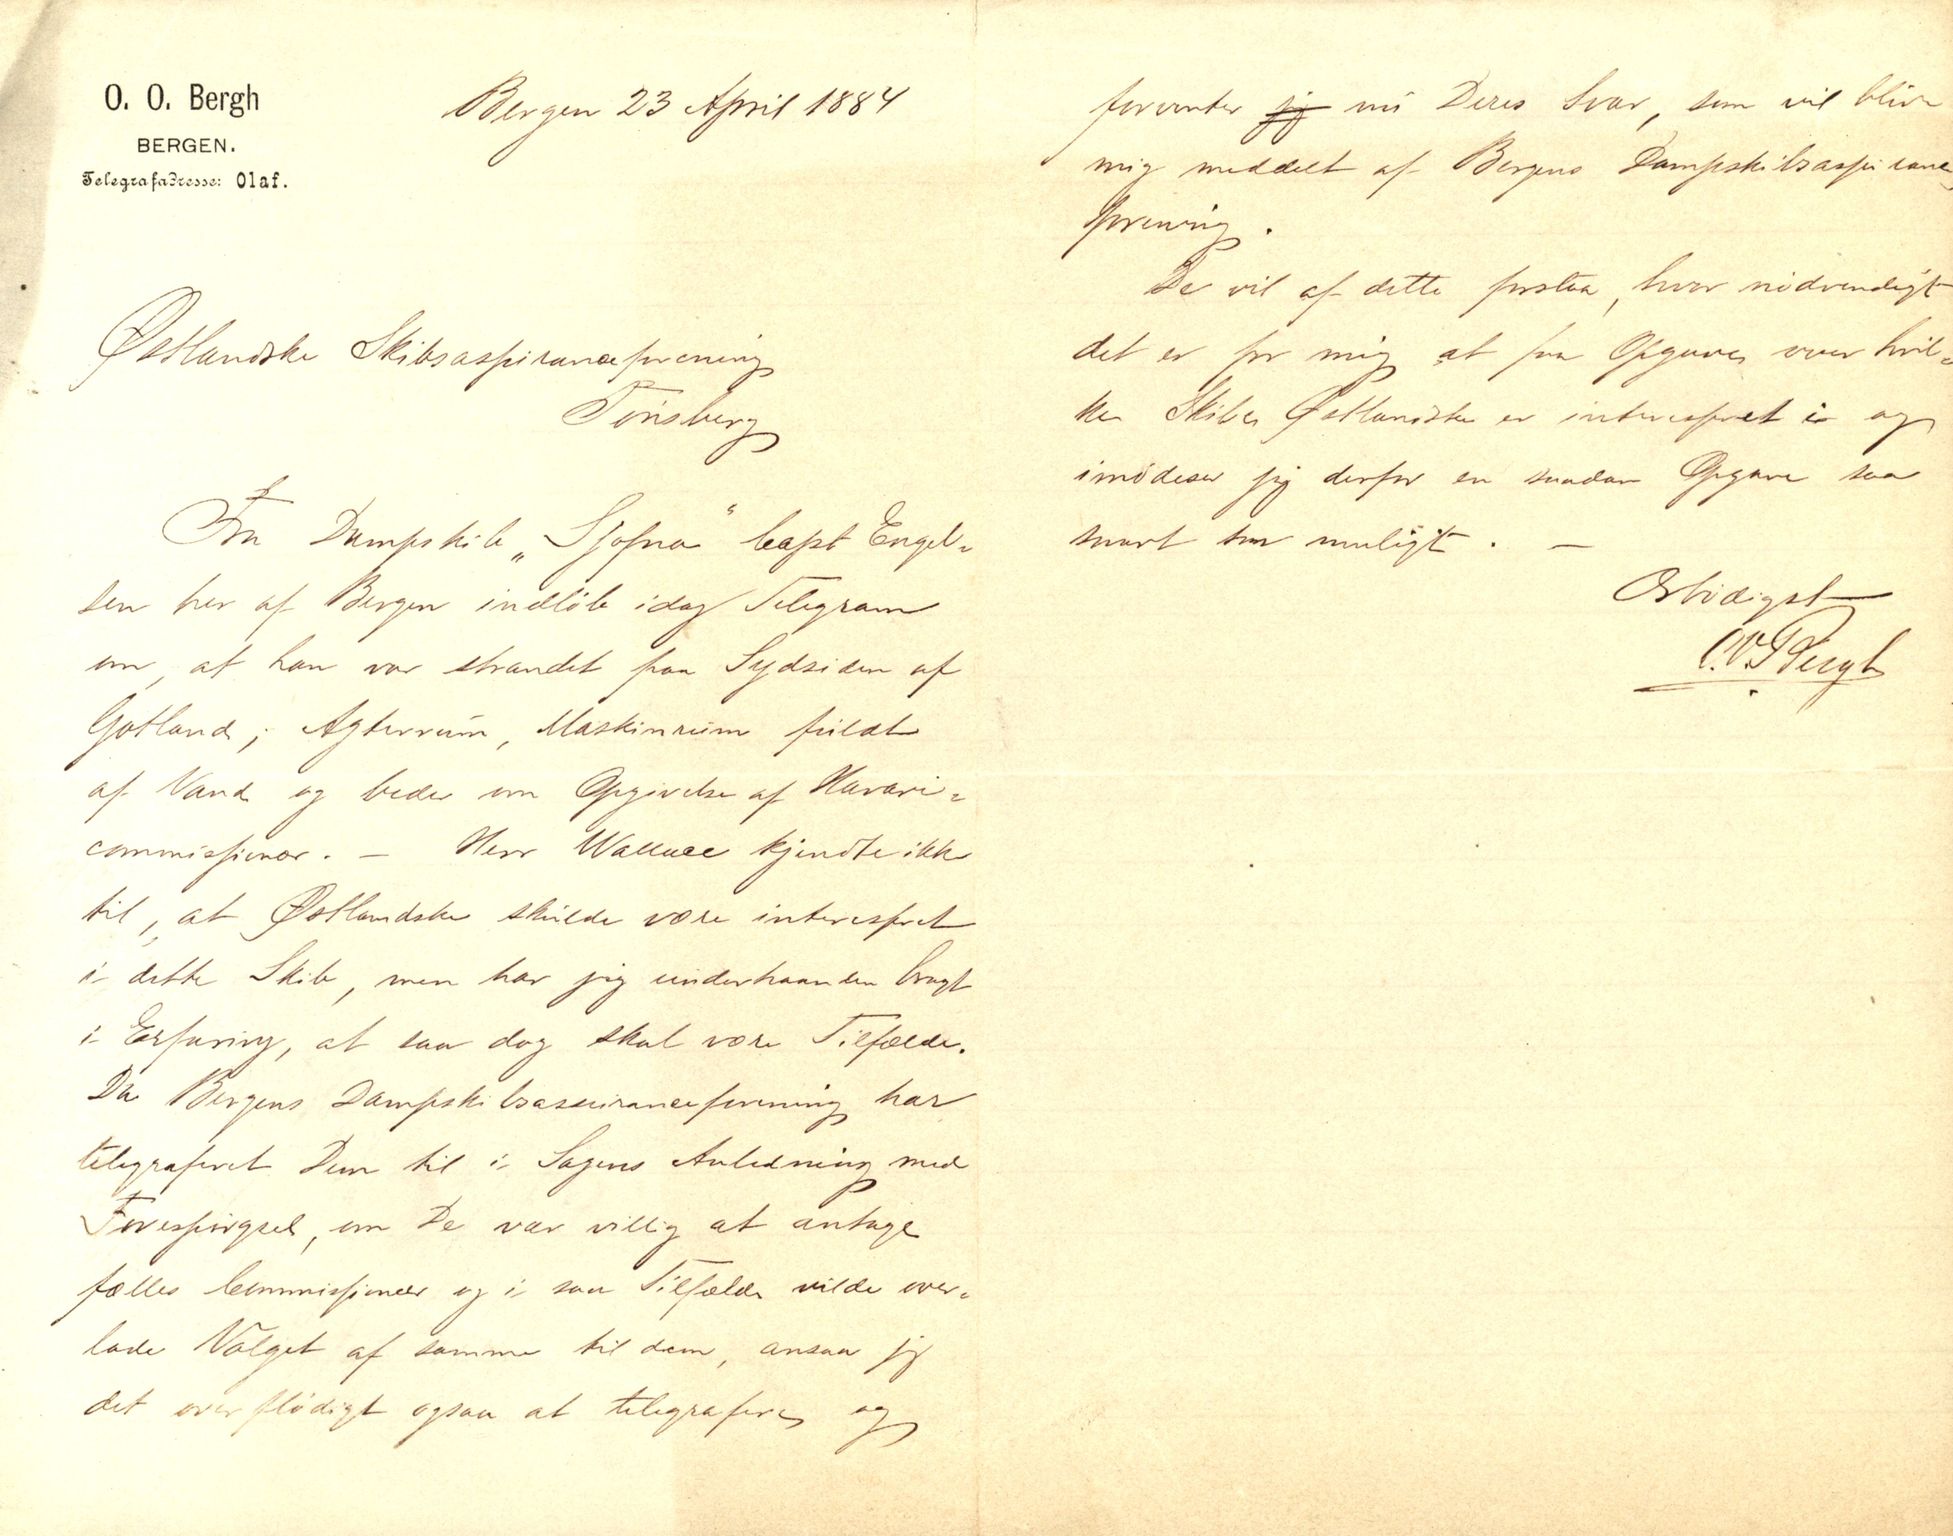 O. O. Bergh
BERGEN.
Telegrafadresse: Olaf.
Bergen 23 April 1884
Østlandske Skibsassuranceforening
Tönsberg
Fra Dampskib „Sjofna“ Capt Engel-
sen her af Bergen indløb idag Telegram
om, at han var strandet paa Sydsiden af
Gotland; Agterrum, Maskinrum fuldt
af Vand og beder om Opgivelse af Havari-
commissionær. — Herr Wallace kjendte ikke
til, at Østlandske skulde være interesseret
i dette Skib, men har jeg underhaanden bragt
i Erfaring, at saa dog skal være Tilfælde.
Da Bergens Dampskibsassuranceforening har
telegraferet Dem til i Sagens Anledning med
Forespörgsel, om De var villig at antage
fælles Commissionær og i saa Tilfælde vilde over-
lade Valget af samme til dem, ansaa jeg
det overflödigt ogsaa at telegrafere og
forventer jeg nu Deres Svar, som vil blive
mig meddelt af Bergens Dampskibsassurance
forening.
De vil af dette forstaa, hvor nödvendigt
det er for mig at faa Opgave over hvil-
ke Skibe Østlandske er interesseret i og
imödeser jeg derfor en saadan Opgave saa
snart som muligt. —
Ærbödigst
O. O. Bergh